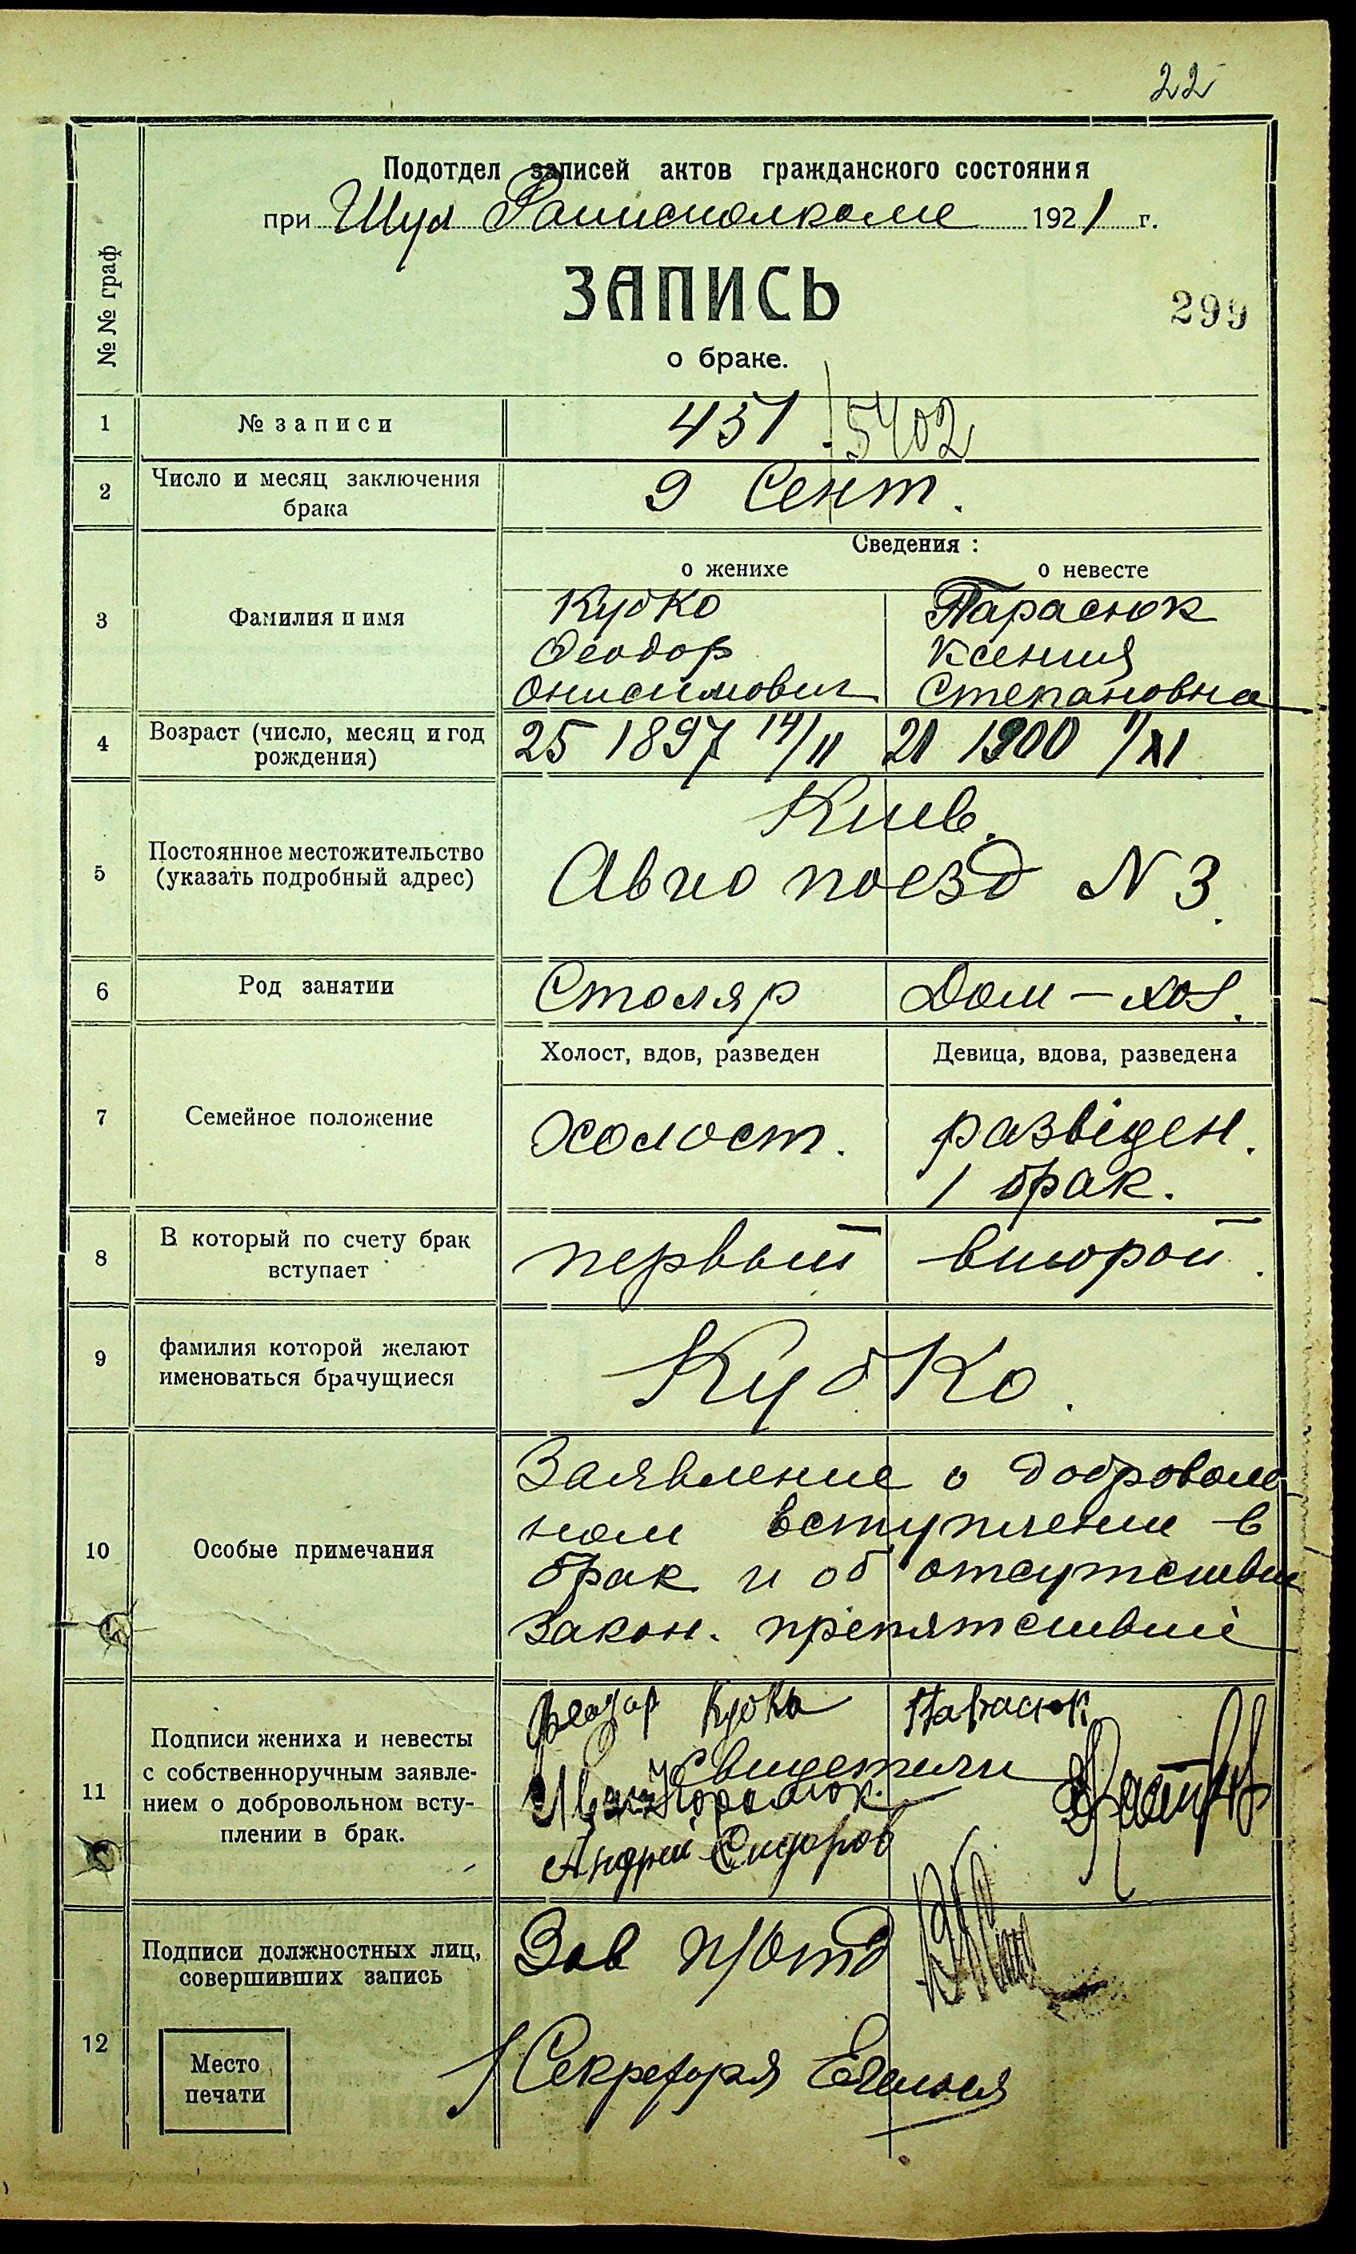 22
Подотдел записей актов гражданского состояния
при Шул Раписполкоме 1921 г.
№ № граф
ЗАПИСЬ
299
о браке.
1 № записи 451 5402
2 Число и месяц заключения брака 9 Сент.
Сведения :
о женихе о невесте
3 Фамилия и имя
Кубко Тарасюк
Феодор Ксения
Онисимович Степановна
4 Возраст (число, месяц и год рождения) 25 1897 14/II 21 1900 1/XI
5 Постоянное местожительство (указать подробный адрес)
Киев.
Авио поезд N 3.
6 Род занятии Столяр Дом-хоз.
Холост, вдов, разведен Девица, вдова, разведена
7 Семейное положение
Холост. развіден.
1 брак.
8 В который по счету брак вступает первый второй.
9 фамилия которой желают именоваться брачущиеся Кубко.
10 Особые примечания
Заявление о доброволь
ном вступлении в
брак и об отсутствии
Закон. препятствий
11 Подписи жениха и невесты
с собственноручным заявле-
нием о добровольном всту-
плении в брак.
Феодор Кубко Парасюк
Свидетили
Андрей Сидоров
12 Подписи должностных лиц,
совершивших запись
Зав п/отд
Секретаря
Место
печати